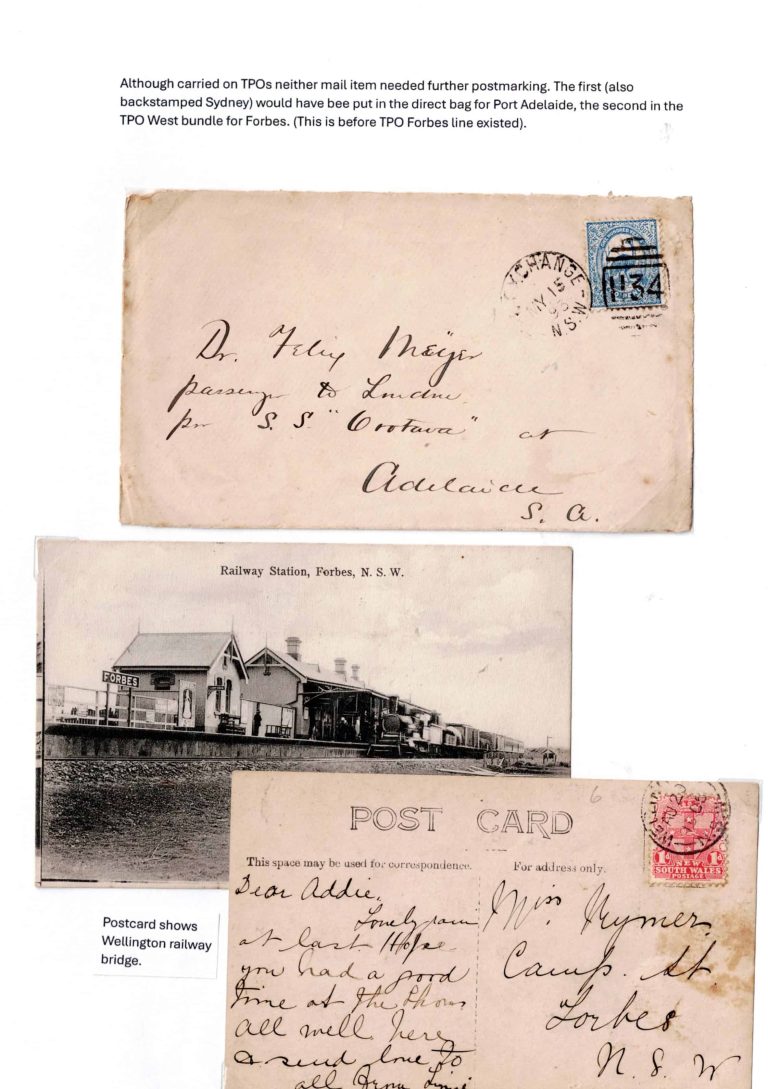 Although carried on TPOs neither mail item needed further postmarking. The first (also
backstamped Sydney) would have bee put in the direct bag for Port Adelaide, the second in the
TPO West bundle for Forbes. (This is before TPO Forbes line existed).
EXCHANGE
MY 15
N.S.W
1134
Dr. Felix Meÿer
passenger to London
per S. S. "Orotava" at
Adelaide
S. A.
Railway Station, Forbes, N. S. W.
FORBES
POST CARD
This space may be used for correspondence.
For address only.
1d NEW 1d
SOUTH WALES
POSTAGE
Dear Addie,
Lovely rain
at last Hope
you had a good
time at the Show
all well here
& send love to
all from
Miss Rymer
Camp. St
Forbes
N. S. W
Postcard shows
Wellington railway
bridge.